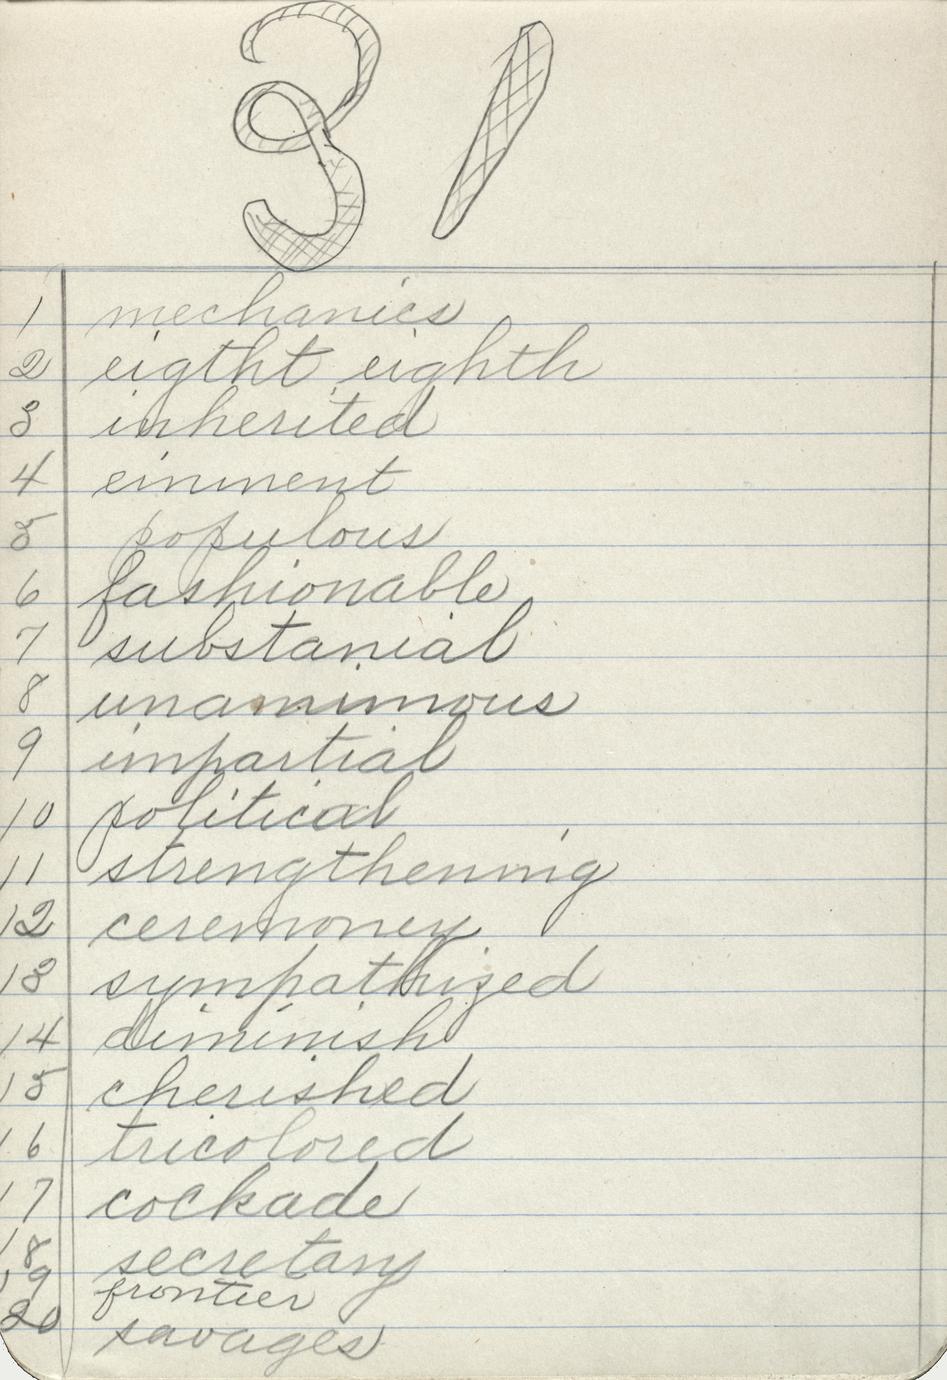 31
1 mechanics
2 eigtht eighth
3 inherited
4 einment
5 populous
6 fashionable
7 substanial
8 unamimous
9 impartial
10 political
11 strengthenning
12 ceremoney
13 sympathized
14 diminish
15 cherished
16 tricolored
17 cockade
18 secretary
19 frontier
20 savages